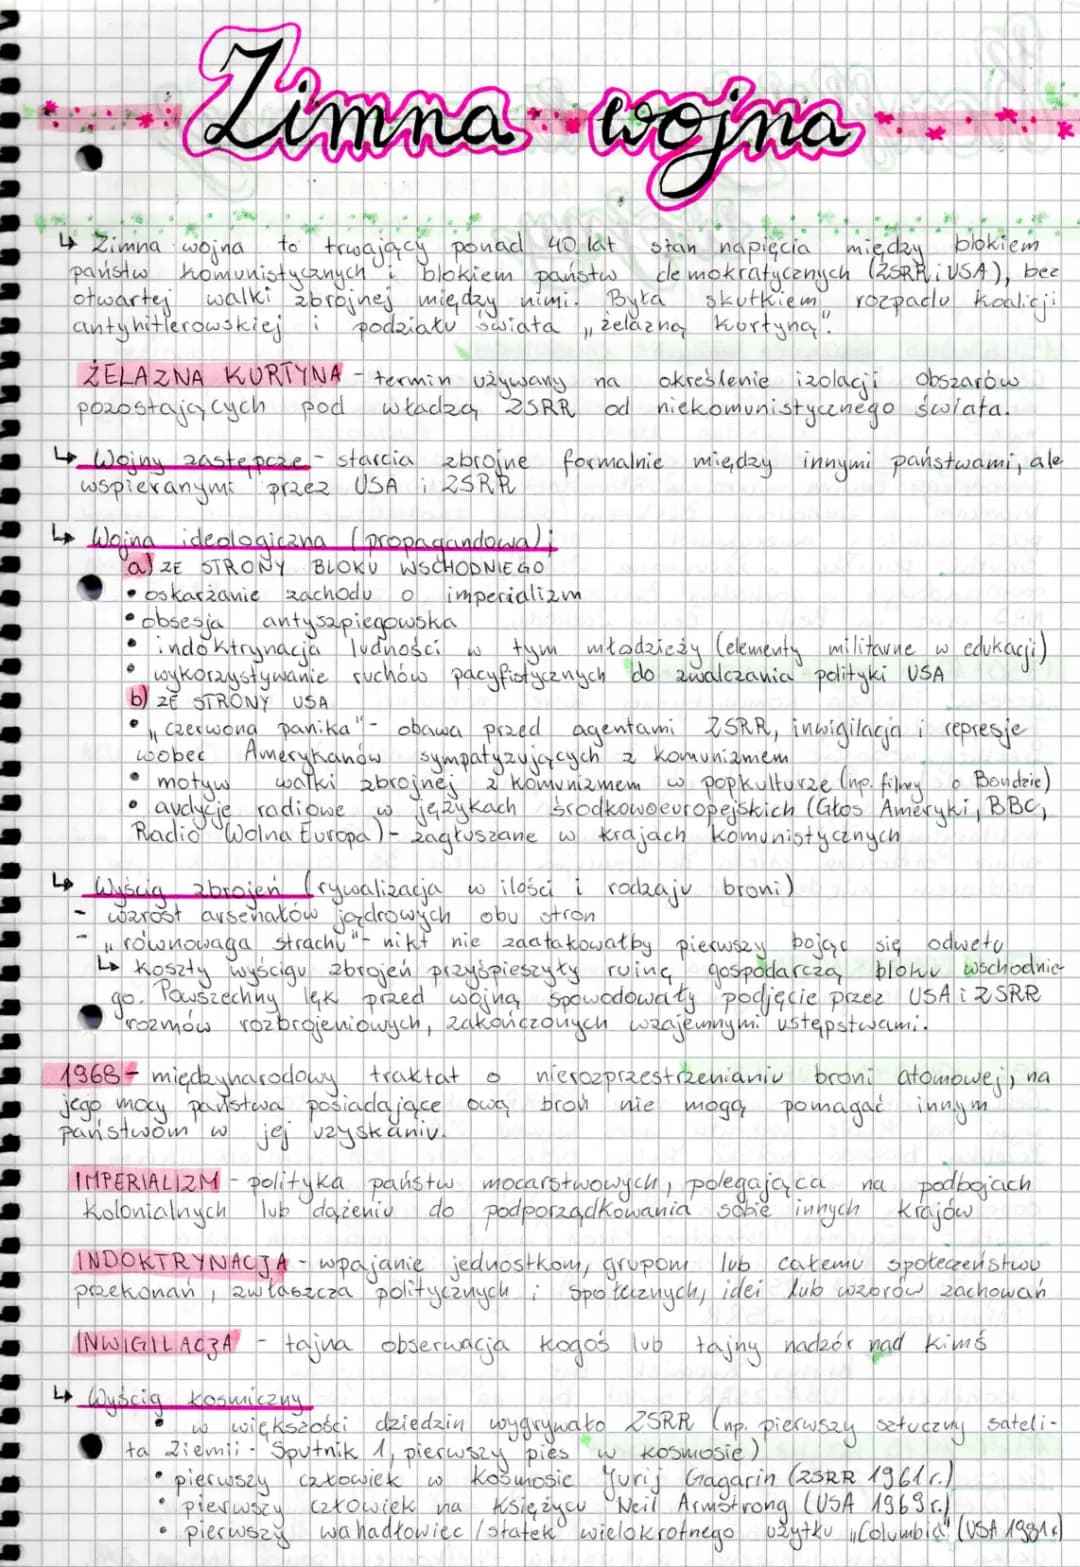 Zimna wojna
↳ Zimna wojna to trwający ponad 40 lat stan napięcia między blokiem
państw komunistycznych i blokiem państw demokratycznych (ZSRR i USA), bez
otwartej walki zbrojnej między nimi. Była skutkiem rozpadu koalicji
antyhitlerowskiej i podziału świata „żelazną kurtyną".
ŻELAZNA KURTYNA - termin używany na określenie izolacji obszarów
pozostających pod władzą ZSRR od niekomunistycznego świata.
↳ Wojny zastępcze - starcia zbrojne formalnie między innymi państwami, ale
wspieranymi przez USA i ZSRR
↳ Wojna ideologiczna (propagandowa):
a) ZE STRONY BLOKU WSCHODNIEGO
• oskarżanie zachodu o imperializm
• obsesja antyszpiegowska
• indoktrynacja ludności w tym młodzieży (elementy militarne w edukacji)
• wykorzystywanie ruchów pacyfistycznych do zwalczania polityki USA
b) ZE STRONY USA
• „czerwona panika" - obawa przed agentami ZSRR, inwigilacja i represje
wobec Amerykanów sympatyzujących z komunizmem
• motyw walki zbrojnej z komunizmem w popkulturze (np. filmy o Bondzie)
• audycje radiowe w językach środkowoeuropejskich (Głos Ameryki, BBC,
Radio Wolna Europa) - zagłuszane w krajach komunistycznych
↳ Wyścig zbrojeń (rywalizacja w ilości i rodzaju broni)
- wzrost arsenałów jądrowych obu stron
- „równowaga strachu" - nikt nie zaatakowałby pierwszy bojąc się odwetu
↳ koszty wyścigu zbrojeń przyśpieszyły ruinę gospodarczą bloku wschodnie-
go. Powszechny lęk przed wojną spowodowały podjęcie przez USA i ZSRR
rozmów rozbrojeniowych, zakończonych wzajemnymi ustępstwami.
1968 - międzynarodowy traktat o nierozprzestrzenianiu broni atomowej, na
jego mocy państwa posiadające ową broń nie mogą pomagać innym
państwom w jej uzyskaniu.
IMPERIALIZM - polityka państw mocarstwowych, polegająca na podbojach
kolonialnych lub dążeniu do podporządkowania sobie innych krajów
INDOKTRYNACJA - wpajanie jednostkom, grupom lub całemu społeczeństwu
przekonań, zwłaszcza politycznych i społecznych, idei lub wzorów zachowań
INWIGILACJA - tajna obserwacja kogoś lub tajny nadzór nad kimś
↳ Wyścig kosmiczny
• w większości dziedzin wygrywało ZSRR (np. pierwszy sztuczny sateli-
ta Ziemii - Sputnik 1, pierwszy pies w kosmosie)
• pierwszy człowiek w kosmosie Jurij Gagarin (ZSRR 1961r.)
• pierwszy człowiek na Księżycu Neil Armstrong (USA 1969r.)
• pierwszy wahadłowiec / statek wielokrotnego użytku „Columbia" (USA 1981r)